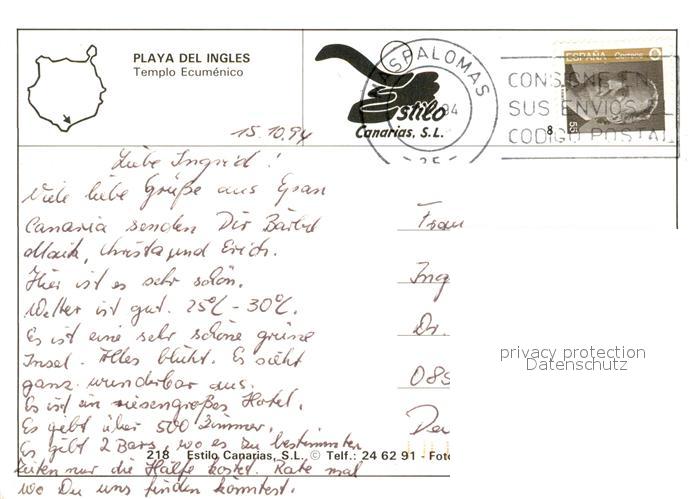 PLAYA DEL INGLES
Templo Ecuménico
Estilo
Canarias, S.L.
MASPALOMAS
94
25
CONSIGNE EN
SUS ENVIOS EL
CODIGO POSTAL
ESPAÑA Correos
55
8
15.10.94
Liebe Ingrid!
Viele liebe Grüße aus Gran
Canaria senden Dir Bärbel
Maik, Christa und Erich.
Hier ist es sehr schön.
Wetter ist gut. 25°C - 30°C.
Es ist eine sehr schöne grüne
Insel. Alles blüht. Es sieht
ganz wunderbar aus.
Es ist ein riesengroßes Hotel.
Es gebt über 500 Zimmer.
Es gibt 2 Bars, wo es zu bestimmten
Zeiten nur die Hälfe kostet. Rate mal
wo Du uns finden könntest.
Frau
Ing
Dr.
085
218 Estilo Canarias, S.L. © Telf.: 24 62 91 - Foto
privacy protection
Datenschutz